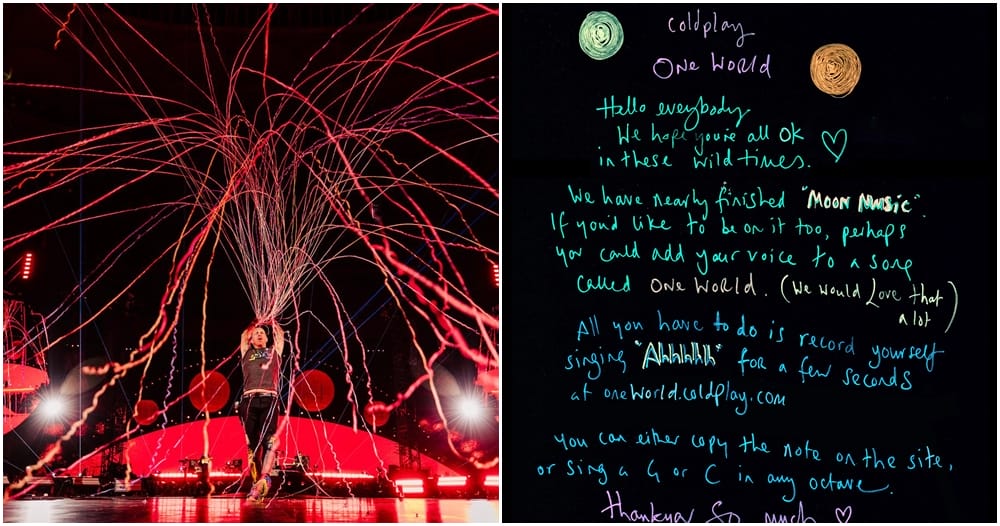 coldplay
One World
Hello everybody
We hope you're all OK
in these wild times.
We have nearly finished "Moon Music".
If you'd like to be on it too, perhaps
you could add your voice to a song
called ONE WORLD. (We would Love that
a lot)
All you have to do is record yourself
singing "Ahhhhh" for a few seconds
at oneworld.coldplay.com
you can either copy the note on the site,
or sing a G or C in any octave.
Thankyou So much